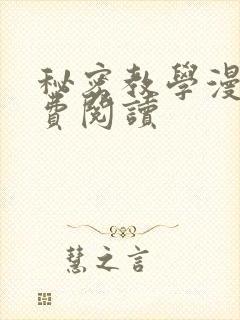 秘密教學漫
費閱讀
慧之言